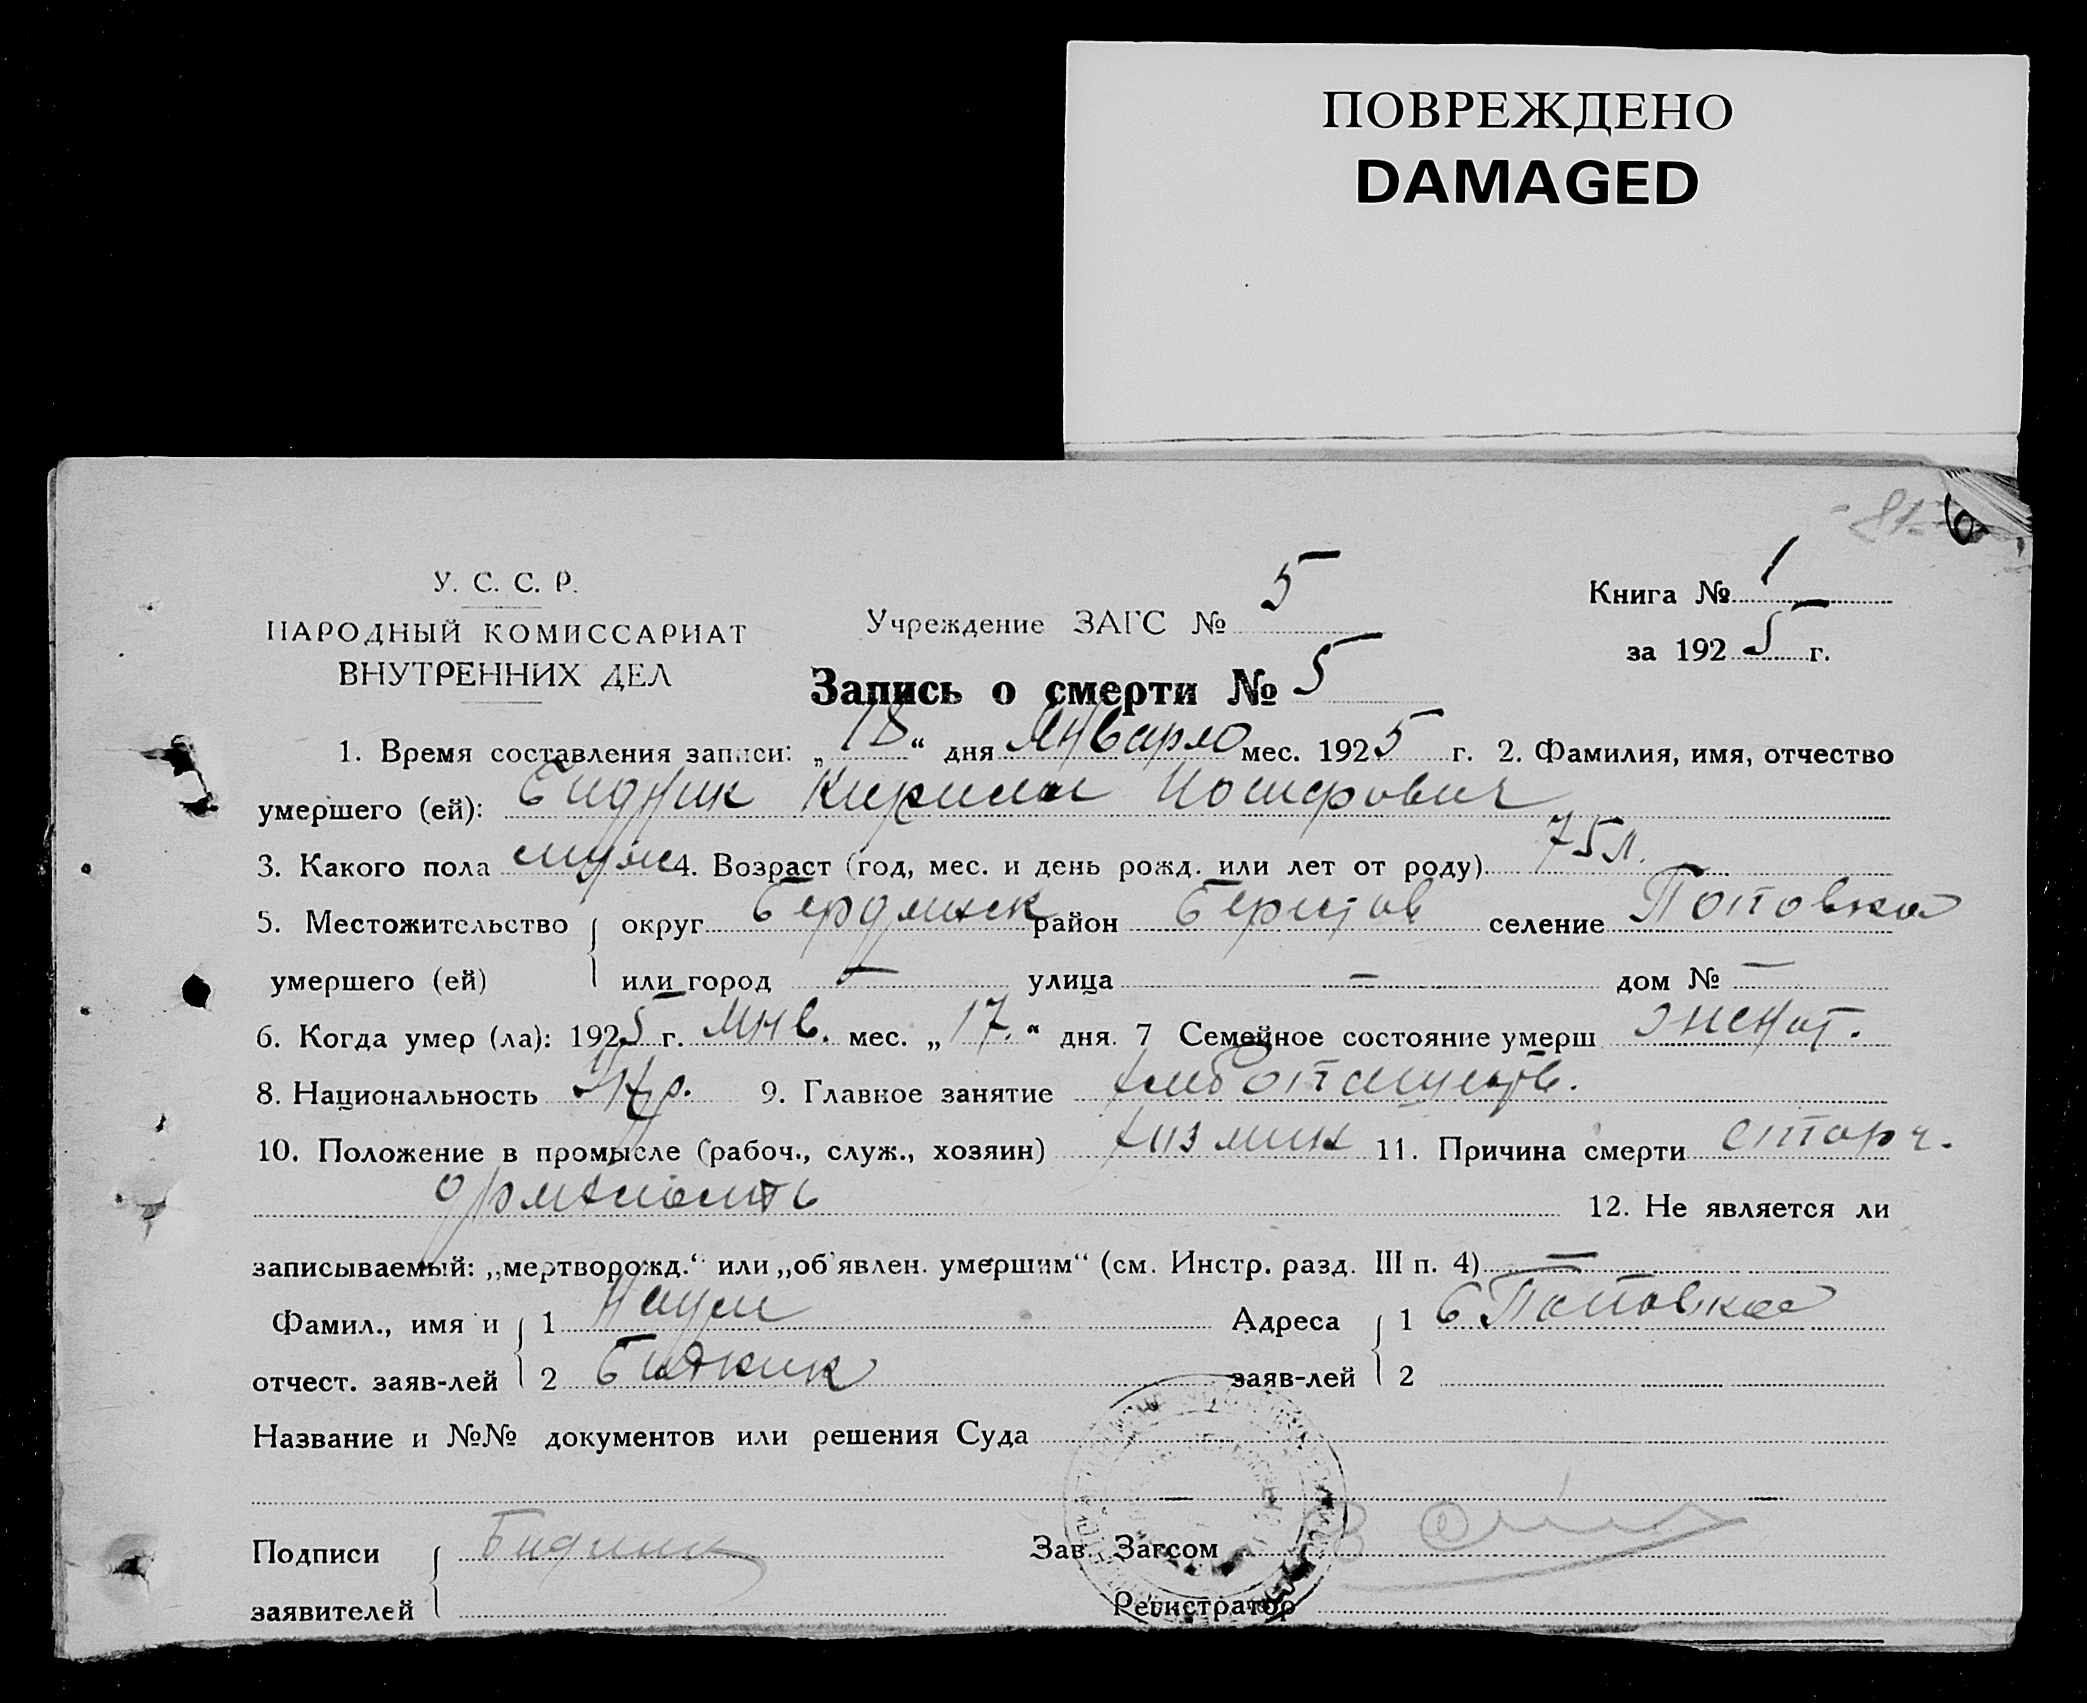 ПОВРЕЖДЕНО
DAMAGED
У. С. С. Р.
НАРОДНЫЙ КОМИССАРИАТ
ВНУТРЕННИХ ДЕЛ
Учреждение ЗАГС № 5
Книга № 1
за 1925 г.
Запись о смерти № 5
1. Время составления записи: „18“ дня Января мес. 1925 г. 2. Фамилия, имя, отчество
умершего (ей): Бидник Кирилл Иосифович
3. Какого пола муж 4. Возраст (год, мес. и день рожд. или лет от роду) 75 л.
5. Местожительство округ Бердянск район Берестов селение Поповка
умершего (ей) или город — улица — дом № —
6. Когда умер (ла): 1925 г. Янв. мес. „17.“ дня. 7 Семейное состояние умерш женат.
8. Национальность Укр. 9. Главное занятие хлебопашеств.
10. Положение в промысле (рабоч., служ., хозяин) хозяин 11. Причина смерти старч.
дряхлость 12. Не является ли
записываемый: „мертворожд.“ или „об'явлен. умершим“ (см. Инстр. разд. III п. 4) —
Фамил., имя и 1 Наум Адреса 1 С Поповка
отчест. заяв-лей 2 Бидник заяв-лей 2
Название и №№ документов или решения Суда
Подписи Бидник Зав. Загсом
заявителей Регистратор